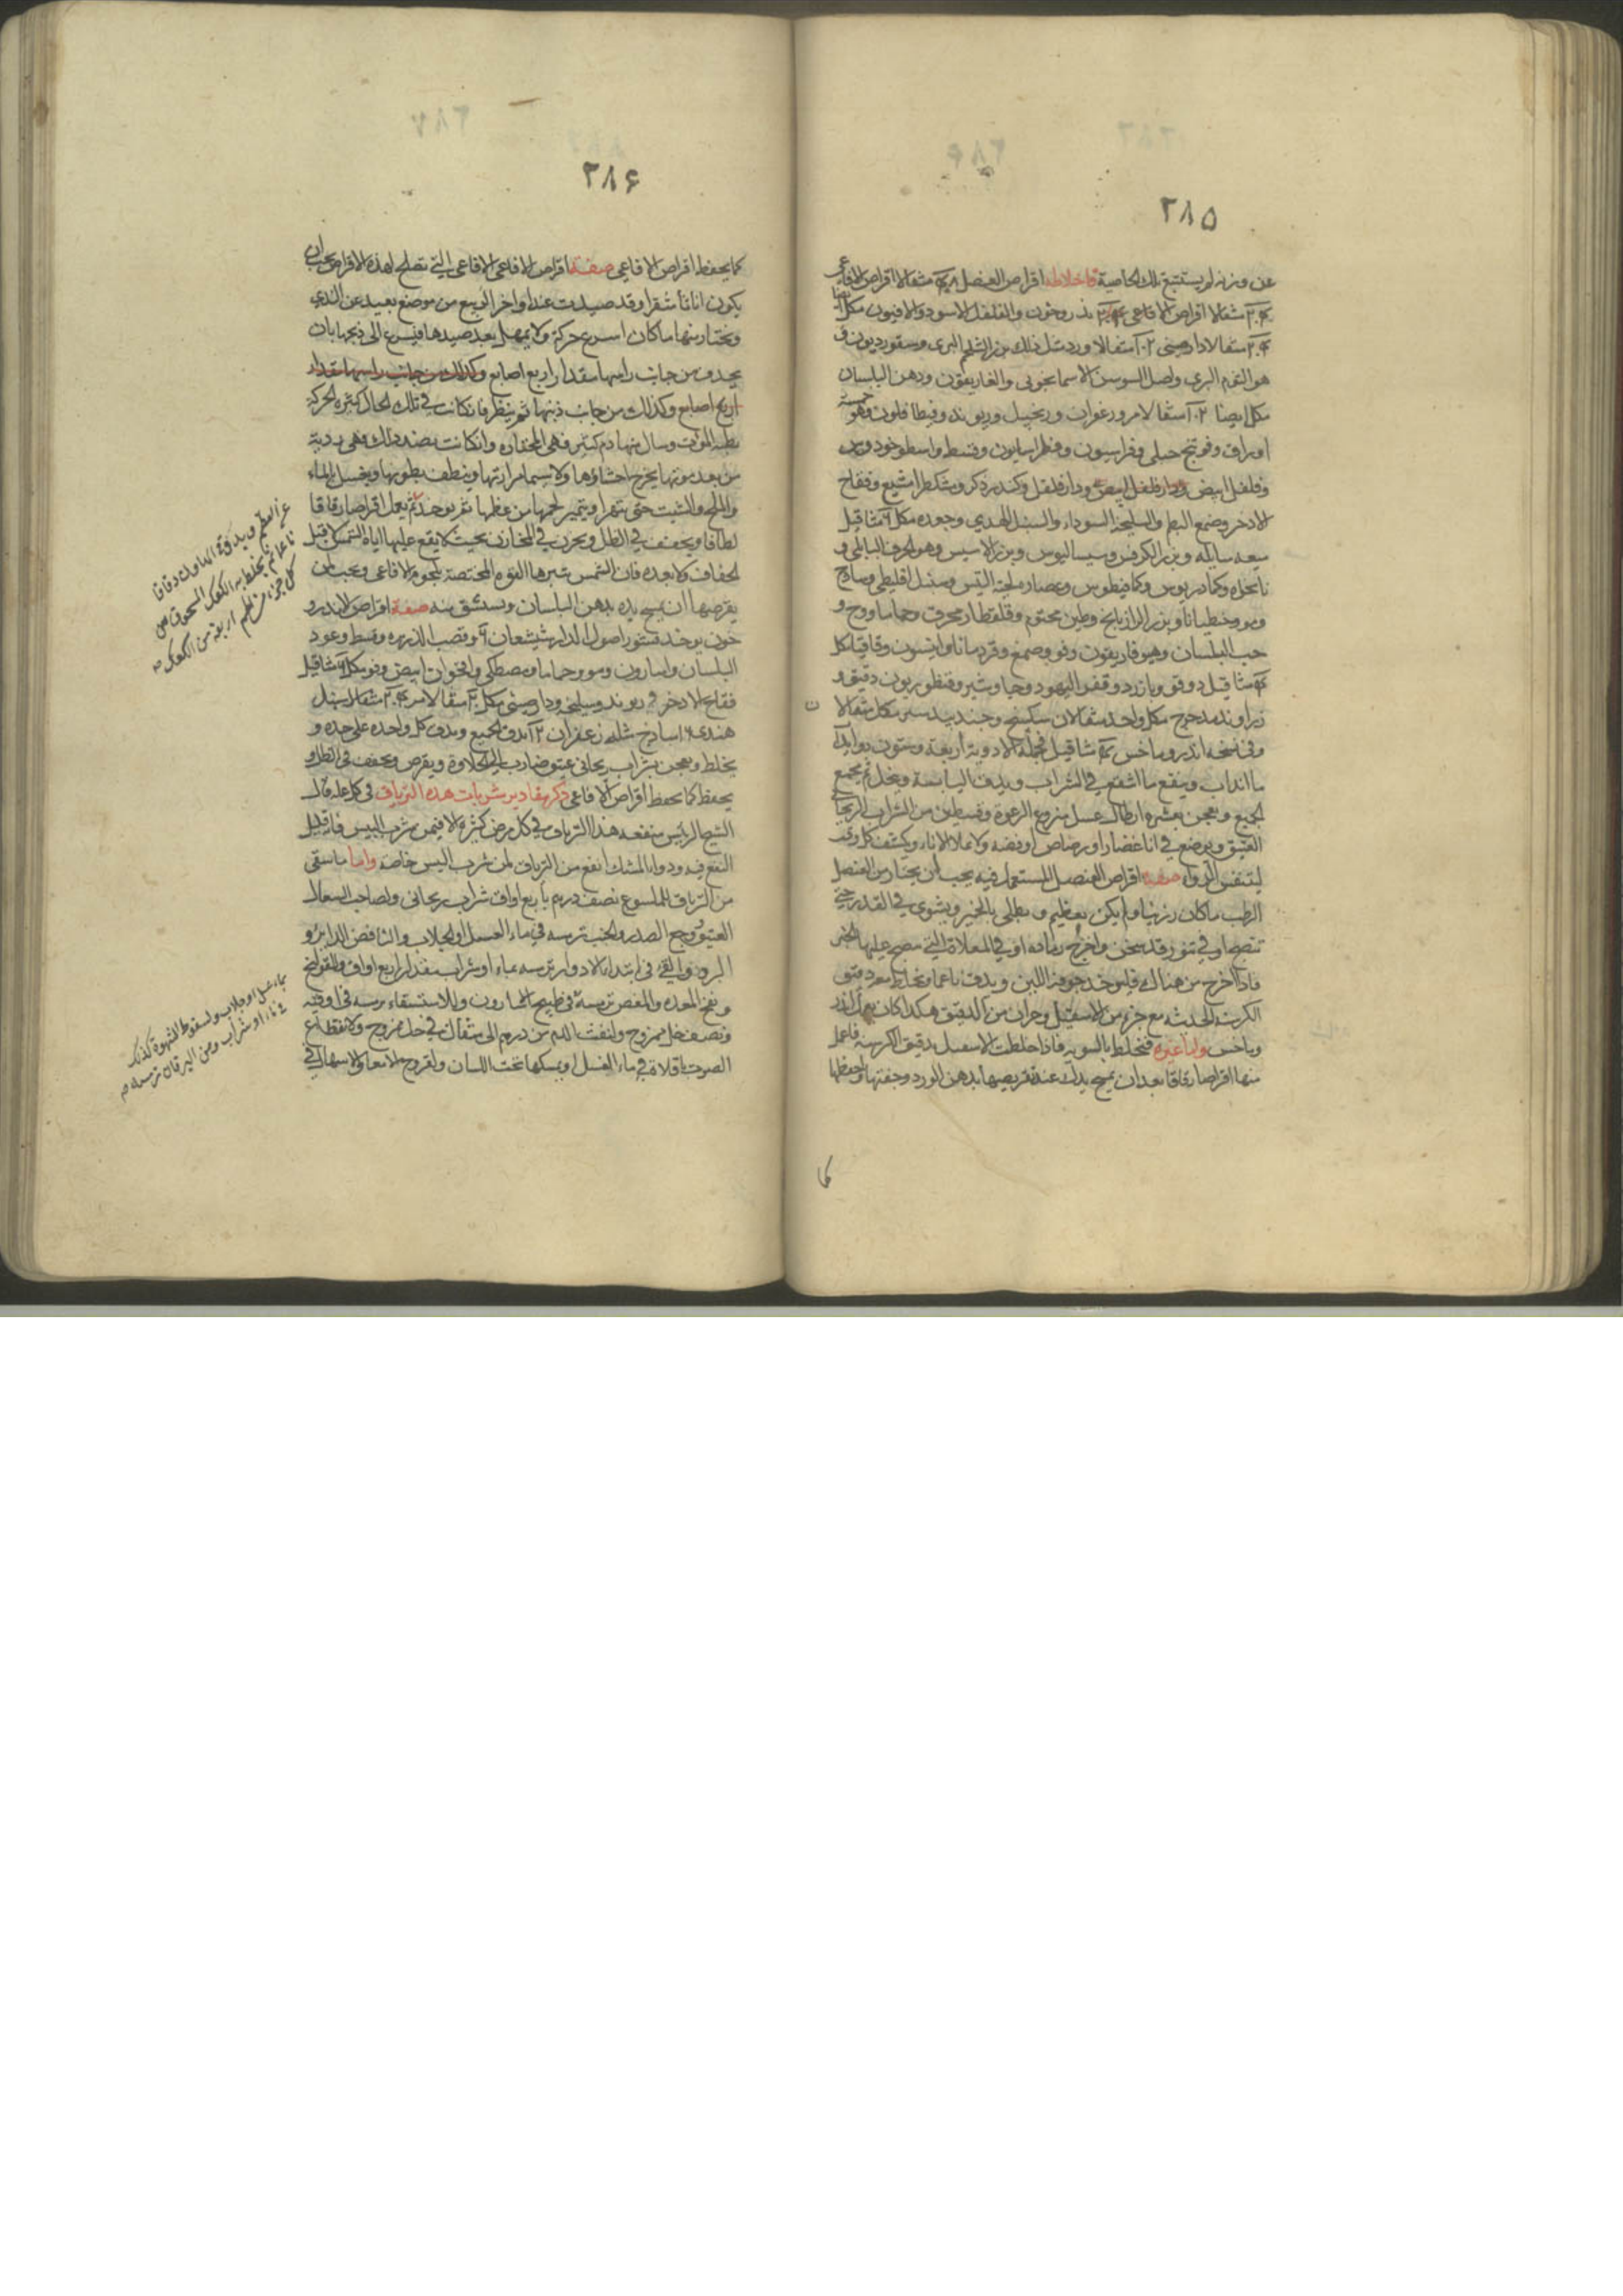 ٢٨٥
عن وزنه لم يستتبع تلك الخاصية فاخلاطه اقراص العنصل ٤٨ مثقالا اقراص الافاعى
٢٤ مثقالا اقراص الاندروخون والفلفل الاسود والافيون مكل ايضا
٢٤ مثقالا دارصينى ١٢ مثقالا ورد مثل ذلك بزر الشلجم البرى وسقورديون و
هو الثوم البرى واصل السوسن الاسمانجونى والغاريقون ودهن البلسان
مكل ايضا ١٢ مثقالا مر وزعفران وزنجبيل وريوند وفنطافلون وهو خمسة
اوراق وفوتنج جبلى وفراسيون وفطراساليون وقسط واسطوخودوس
وفلفل ابيض ودارفلفل وكندر ذكر ومشكطرامشيع وفقاح
الاذخر وصمغ البطم والسليخة السوداء والسنبل الهندى وجعده مكل ٦ مثاقيل
ميعه سايله وبزر الكرفس وسيساليوس وبزر الاسيس وهو الحرف البابلى و
نانخواه وكمادريوس وكمافيطوس وعصاره لحية التيس وسنبل اقليطى وساذج
ومو وجنطيانا وبزر الرازيانج وطين مختوم وقلقطار محرق وحماما ووج و
حب البلسان وهيوفاريقون وفو وصمغ وقردمانا وانيسون وقاقيا مكل
٤ مثاقيل دوقو وبارزد وقفر اليهود وجاوشير وقنطوريون دقيق و
زراوند مدحرج مكل واحد مثقالان سكبينج وجندبيدستر مكل مثقالا
وفى نسخه اندروماخس ٤ مثاقيل فجملة الادوية اربعة وستون دواء يذاب
ما انذاب وينقع ما انتقع فى الشراب ويدق اليابسة وينخل ثم يجمع
الجميع ويعجن بعشره ارطال عسل منزوع الرغوة وقسطين من الشراب الريحانى
العتيق ويوضع فى انا غضار او رصاص او فضه ولا يملا الاناء ويكشف كل وقت
ليتنفس الدواء صفة اقراص العنصل المستعمل فيه يجب ان يختار من العنصل
الرطب ما كان رزينا ولم يكن بعظيم ويطلى بالخمير ويشوى فى القدر حتى
تنضج او فى تنور قد سخن واخرج رماده او فى المقلاة التى نضج عليها الخبز
فاذا اخرج من هناك فليوخذ جوفه اللين ويدق ناعما ويخلط معه دقيق
الكرسنه الحديثه مع جزء من الاسقيل وجزان من الدقيق هكذا كان يعمل اندر
وماخس واما غيره فيخلط بالسويه فاذا خلطت الاسقيل بدقيق الكرسنه فاعمل
منها اقراصا رقاقا بعد ان تمسح يدك عند تقريصها بدهن الورد وجففها واحفظها
كما
٢٨٦
كما يحفظ اقراص الافاعى صفة اقراص الافاعى الافاعى التى تصلح لهذه الاقراص يجب ان
يكون اناثا شقرا وقد صيدت عند اواخر الربيع من موضع بعيد عن الندى
ويختار منها ما كان اسرع حركة ولا يمهل بعد صيدها فيسرع الى ذبحها بان
يحذف من جانب راسها مقدار اربع اصابع وكذلك من جانب راسها مقدار
اربع اصابع وكذلك من جانب ذنبها ثم ينظر فان كانت فى تلك الحال كثيره الحركة
بطيه الموت وسال منها دم كثير فهى المختاره وان كانت بضد ذلك وهى رديه
من بعد موتها يخرج احشاؤها ولا سيما مرارتها وينظف بطونها ويغسل بالماء
والملح والشبت حتى تتهرا ويتميز لحمها من عظمها ثم يوخذ ثم يعمل اقراصا رقاقا
لطافا ويجفف فى الظل ويخزن فى المخازن بحيث لا يقع عليها اياة الشمس لا قبل
الجفاف ولا بعده فان الشمس تبزها القوه المختصة بلحوم الافاعى ويجب لمن
يقرصها ان يمسح يده بدهن البلسان ويستنشق منه صفة اقراص الاندرو
خون يوخذ قشور اصول الدارشيشعان ٦ وقصب الذريره وقسط وعود
البلسان واسارون ومو وحماما ومصطكى واقحوان ابيض وفو مكل ٦ مثاقيل
فقاح الاذخر و ريوند وسليخه ودارصينى مكل ٢٠ مثقالا مر ٢٤ مثقالا سنبل
هندى ١٦ ساذج مثله زعفران ١٢ يدق الجميع ويدق كل واحده على حده و
يخلط ويعجن بشراب ريحانى عتيق ضارب الى الحلاوة ويقرص ويجفف فى الظل و
يحفظ كما يحفظ اقراص الافاعى ذكر مقادير شربات هذه الترياق فى كل عله قال
الشيخ الرئيس منفعه هذا الترياق فى كل مرض كثيره الا فيمن شرب البيش فانه قليل
النفع فيه ودواء المسك انفع من الترياق لمن شرب البيش خاصه واما ما يسقى
من الترياق للملسوع نصف درم باربع اواق شراب ريحانى ولصاحب السعال
العتيق ووجع الصدر والجنب ترمسه فى ماء العسل او الجلاب والنافض الدايره و
البرد والقئ فى ابتداء الادوار ترمسه بماء او شراب مقدار اربع اواق وللقولنج
ونفخ المعده والمغص ترمسة فى طبيخ المازريون وللاستسقاء ترمسه فى اوقيه
ونصف خل ممزوج ولنفث الدم من درم الى مثقال فى خل ممزوج ولانقطاع
الصوت باقلاة فى ماء العسل او يمسكها تحت اللسان ولقروح الامعاء والاسهال فى
عن العظم ويدق فى الهاون دقاقا
ناعما ثم يخلط به الكعك المسحوق من
كل جزء من اللحم اربعة من الكعك
بماء عسل او جلاب ولسقوط الشهوة كذلك
فى ماء او شراب ومن اليرقان ترمسه